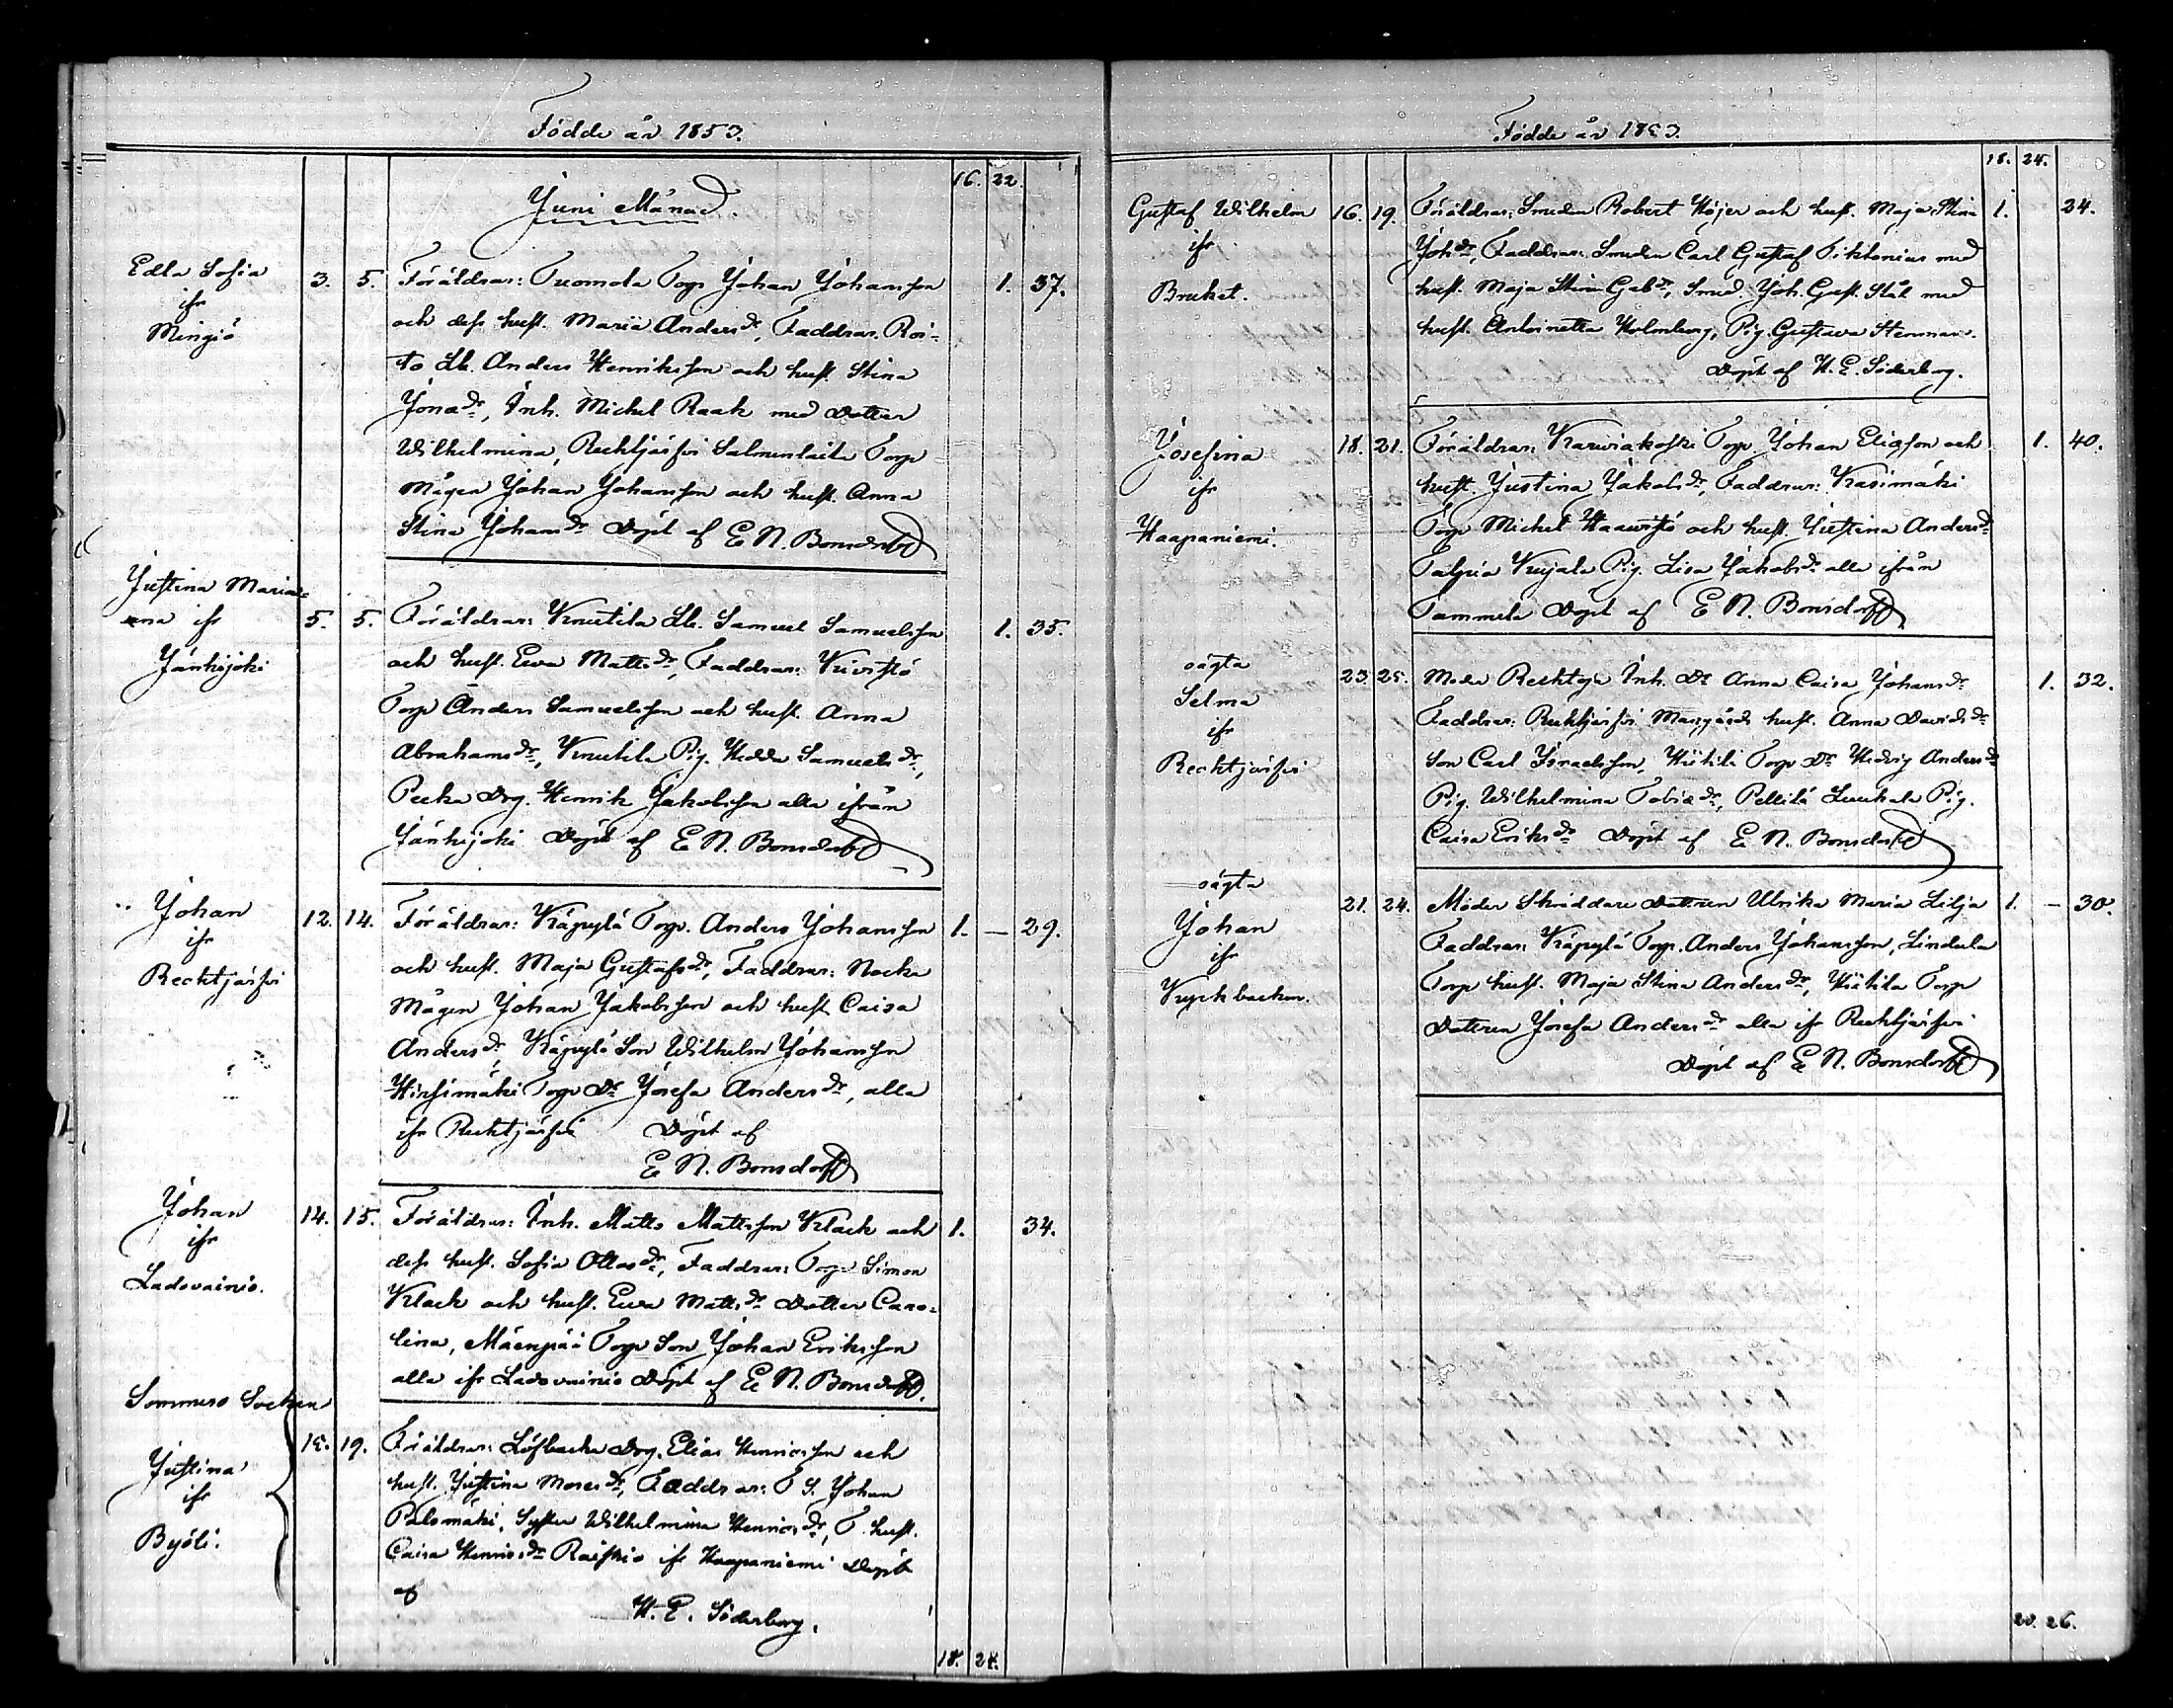 Födde år 1853.
16. 22.
Juni Månad.
Edla Sofia
ifr
Mingiö
3. 5. Föräldrar: Tuomola Torp. Johan Johansson 1. 37.
och dess hust. Maria Andersdr, Faddrar: Roi-
to Lb. Anders Henriksson och hust. Stina
Jonædr, Inh. Michel Raak med Dotter
Wilhelmina, Rechtjärfvi Salmenlaita Torp
Mågen Johan Johansson och hust. Anna
Stina Johansdr Döpt af E N. Bonsdorff
Justina Maria-
na ifr
Jänhijoki
5. 5. Föräldrar: Knutila Lb. Samuel Samuelsson 1. 35.
och hust. Ewa Mattsdr, Faddrar: Kivistö
Torp Anders Samuelsson och hust. Anna
Abrahamsdr, Knutila Pig. Hedda Samuelsdr,
Pecka Drg. Henrik Jakobsson alla ifrån
Jänhijoki Döpt af E N. Bonsdorff
Johan
ifr
Rechtjärfvi
12. 14. Föräldrar: Käpylä Torp. Anders Johansson 1. — 29.
och hust. Maja Gustafsdr, Faddrar: Nocka
Mågen Johan Jakobsson och hust. Caisa
Andersdr, Käpylä Son Wilhelm Johansson
Hirsimäki Torp Dr Josefa Andersdr, alla
ifr Rechtjärfvi Döpt af
E N. Bonsdorff
Johan
ifr
Ladovainio.
14. 15. Föräldrar: Inh. Matts Mattsson Klack och 1. 34.
dess hust. Sofia Ollasdr, Faddrar: Torp Simon
Klack och hust. Ewa Mattsdr Dotter Caro-
lina, Mäenpää Torp Son Johan Eriksson
alla ifr Ladovainio Döpt af E N. Bonsdorff.
Sommero Socken
Justina
ifr
Byöli.
19. Föräldrar: Löfbacka Drg. Elias Henricsson och
hust. Justina Mosesdr, Faddrar: T S. Johan
Palomäki, Syster Wilhelmina Henricsdr, T. hust.
Caisa Henricsdr Raiskio ifr Haapaniemi Döpt
af
H. E. Söderborg.
18. 24.
Födde år 1853.
18. 24.
Gustaf Wilhelm
ifr
Bruket.
16. 19. Föräldrar: Smeden Robert Höjer och hust. Maja Stina 1. 24.
Johdr, Faddrar: Smeden Carl Gustaf Tiktonius med
hust. Maja Stina Gabdr, Smed Joh. Gust. Stål med
hust. Antoinetta Holmberg, Pig. Gustava Stenman.
Döpt af H. E. Söderborg.
Josefina
ifr
Haapaniemi.
18. 21. Föräldrar: Karviakoski Torp Johan Eliasson och 1. 40.
hust. Justina Jakobsdr, Faddrar: Kasimäki
Torp Michel Haavistö och hust. Justina Andersdr
Talpia Kujala Pig. Lisa Jakobsdr alla ifrån
Tammela Döpt af E N. Bonsdorff
oägta
Selma
ifr
Rechtjärfvi
23. 25. Moder Rechtga Inh. Dr Anna Caisa Johansdr 1. 32.
Faddrar: Rechtjärfvi Mangårds hust. Anna Davidsdr
Son Carl Israelsson, Hütila Torp Dr Hedvig Andersdr
Pig. Wilhelmina Tobiædr, Pellilä Luuhala Pig.
Caisa Eriksdr Döpt af E N. Bonsdorff
oägta
Johan
ifr
Kyrkbacken.
21. 24. Moder Skräddare Dottren Ulrika Maria Lilja 1. — 30.
Faddrar: Käpylä Torp. Anders Johansson, Lindula
Torp hust. Maja Stina Andersdr, Hütila Torp
Dottren Josefa Andersdr alla ifr Rechtjärfvi
Döpt af E N. Bonsdorff
20. 26.